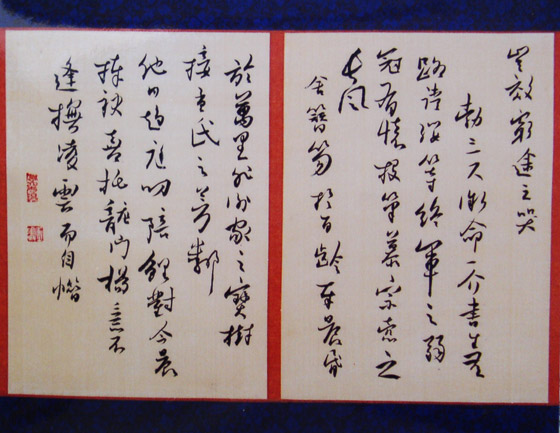 豈效窮途之哭
勃三尺微命一介書生無
路請纓等終軍之弱
冠有懷投筆慕宗愨之
長風
舍簪笏於百齡奉晨昏
於萬里非謝家之寶樹
接孟氏之芳鄰
他日趨庭叨陪鯉對今晨
捧袂喜托龍門楊意不
逢撫凌雲而自惜